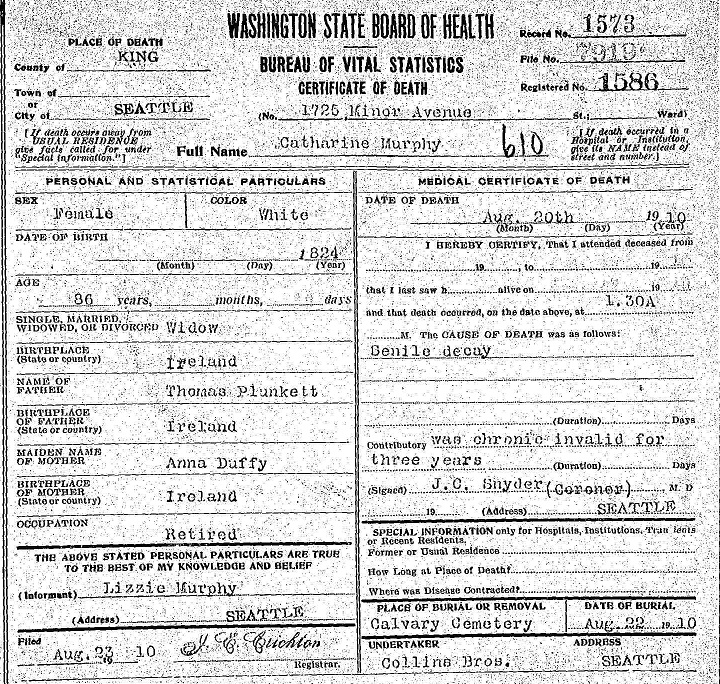 WASHINGTON STATE BOARD OF HEALTH
BUREAU OF VITAL STATISTICS
CERTIFICATE OF DEATH
Record No. 1573
File No. 7919
Registered No. 1586
PLACE OF DEATH
County of KING
Town of
or
City of SEATTLE
(No. 1725 Minor Avenue St.; Ward)
[If death occurs away from
USUAL RESIDENCE
give facts called for under
"Special information."]
Full Name Catharine Murphy 610
[If death occurred in a
Hospital or Institution,
give its NAME instead of
street and number.]
PERSONAL AND STATISTICAL PARTICULARS
SEX COLOR
Female White
DATE OF BIRTH
1824
(Month) (Day) (Year)
AGE
86 years, months, days
SINGLE, MARRIED,
WIDOWED, OR DIVORCED Widow
BIRTHPLACE
(State or country) Ireland
NAME OF
FATHER Thomas Plunkett
BIRTHPLACE
OF FATHER
(State or country) Ireland
MAIDEN NAME
OF MOTHER Anna Duffy
BIRTHPLACE
OF MOTHER
(State or country) Ireland
OCCUPATION
Retired
THE ABOVE STATED PERSONAL PARTICULARS ARE TRUE
TO THE BEST OF MY KNOWLEDGE AND BELIEF
(Informant) Lizzie Murphy
(Address) SEATTLE
Filed
Aug. 23 19 10 J. E. Crichton
Registrar.
MEDICAL CERTIFICATE OF DEATH
DATE OF DEATH
Aug. 20th 1910
(Month) (Day) (Year)
I HEREBY CERTIFY, That I attended deceased from
19 , to 19
that I last saw h alive on 19
and that death occurred, on the date above, at 1.30A
M. The CAUSE OF DEATH was as follows:
Senile decay
(Duration) Days
Contributory was chronic invalid for
three years (Duration) Days
(Signed) J.C. Snyder (Coroner) M. D
19 (Address) SEATTLE
SPECIAL INFORMATION only for Hospitals, Institutions, Transients
or Recent Residents.
Former or Usual Residence
How Long at Place of Death?
Where was Disease Contracted?
PLACE OF BURIAL OR REMOVAL DATE OF BURIAL
Calvary Cemetery Aug. 22 1910
UNDERTAKER ADDRESS
Collins Bros. SEATTLE